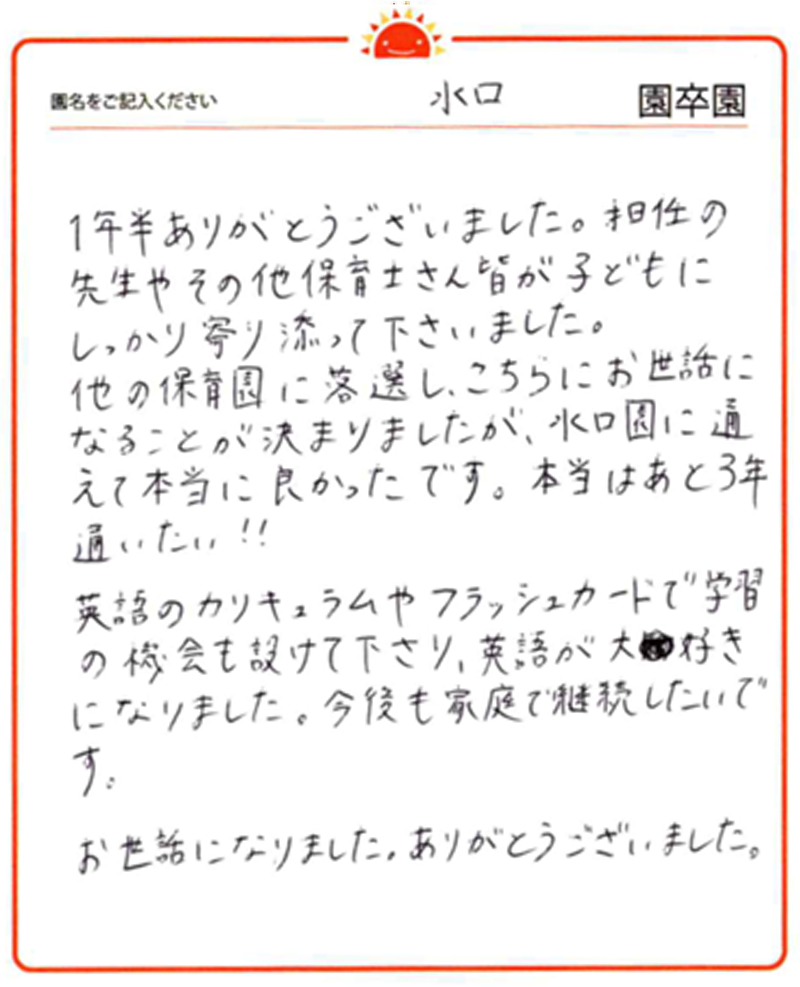 園名をご記入ください 水口 園卒園
1年半ありがとうございました。担任の
先生やその他保育士さん皆が子どもに
しっかり寄り添って下さいました。
他の保育園に落選し、こちらにお世話に
なることが決まりましたが、水口園に通
えて本当に良かったです。本当はあと3年
通いたい!!
英語のカリキュラムやフラッシュカードで学習
の機会も設けて下さり、英語が大好き
になりました。今後も家庭で継続したいで
す。
お世話になりました。ありがとうございました。